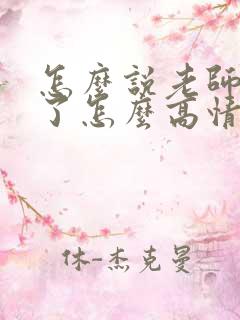 怎麼說老師
了怎麼高情
休-杰克曼